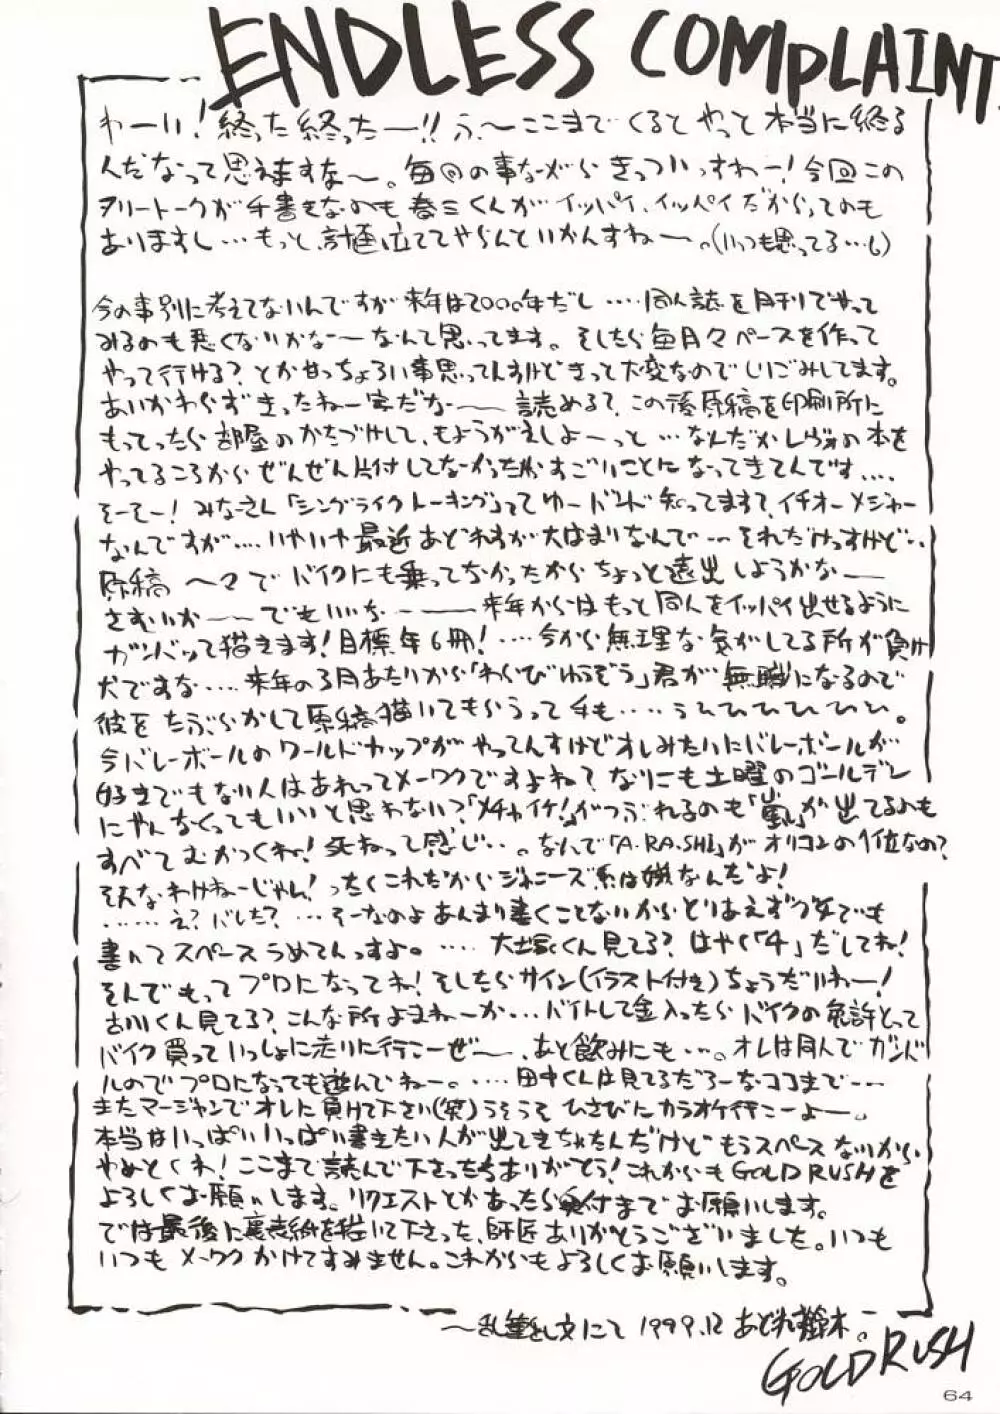 ENDLESS COMPLAINT
わーい!終った終ったー!!ふ〜ここまでくるとやっと本当に終る
んだなって思えますな〜。毎回の事ながらきっついっすわー!今回この
フリートークが手書きなのも春三くんがイッパイ、イッパイだからってのも
ありますし…もっと、計画立ててやらんといかんすねー。(いつも思ってる…し)
今の事別に考えてないんですが来年は2000年だし....同人誌を月刊でやって
みるのも悪くないかなー〜なんて思ってます。そしたら毎月々ペースを作って
やって行ける?とか甘っちょろい事思ってんすけどきっと大変なのでしりごみしてます。
あいかわらずきったねー字だな――読めるて?この後原稿を印刷所に
もってったら部屋のかたづけして、もようがえしよーっと…なんだかレヴォの本を
やってるころからぜんぜん片付してなかったからすごいことになってきてんです....
そーそー!みなーさん「シングライクトーキング」ってゆーバンド知ってますて?イチオーメジャー
なんですが....いやいや最近あどれすが大はまりなんで…それだけっすけど…
原稿〜々でバイクにも乗ってなかったからちょっと遠出しようかなー
さむいかー―でもいいなー―来年からはもっと同人をイッパイ出せるように
ガンバって描きます!目標年6冊!....今から無理な気がしてる所が負け
犬ですな....来年の3月あたりから「わらびゆうぞう」君が無職になるので
彼をたぶらかして原稿描いてもらうって手も....うひひひひひひ。
今バレーボールのワールドカップがやってんすけどオレみたいにバレーボールが
好きでもない人はあれってメーワクですよね?なにも土曜のゴールデン
にやんなくってもいいと思わない?「メチャイケ!」がつぶれるのも「嵐」が出てるのも
すべてむかつくね!死ねって感じ…。なんで「A・RA・SHI」がオリコンの1位なの?
そんなわけねーじゃん!ったくこれだからジャニーズ系は嫌なんだよ!
......え?バレた?…そーなのよあんまり書くことないからとりあえずグチでも
書いてスペースうめてんっすよ。....大塚くん見てる?はやく「4」だしてね!
そんでもってプロになってね!そしたらサイン(イラスト付き)ちょうだいねー!
古川くん見てる?こんな所よまねーか…バイトして金入ったらバイクの免許とって
バイク買っていっしょに走りに行こーぜ〜、あと飲みにも…。オレは同人でガンバ
ルのでプロになっても遊んでねー。....田中くんは見てるだろーなココまで…
またマージャンでオレに負けて下さい(笑)うそうそひさびにカラオケ行こーよー。
本当はいっぱいいっぱい書きたい人が出てきちゃたんだけどもうスペースないから
やめとくね!ここまで読んで下さったちありがとう!これからもGOLD RUSHを
よろしくお願いします。リクエストとかあったら受付までお願いします。
では最後に裏表紙を描いて下さった、師匠ありがとうございました。いつも
いつもメーワクかけてすみません。これからもよろしくお願いします。
〜乱筆乱文にて 1999.12 あどれす鈴木。
GOLD RUSH
64